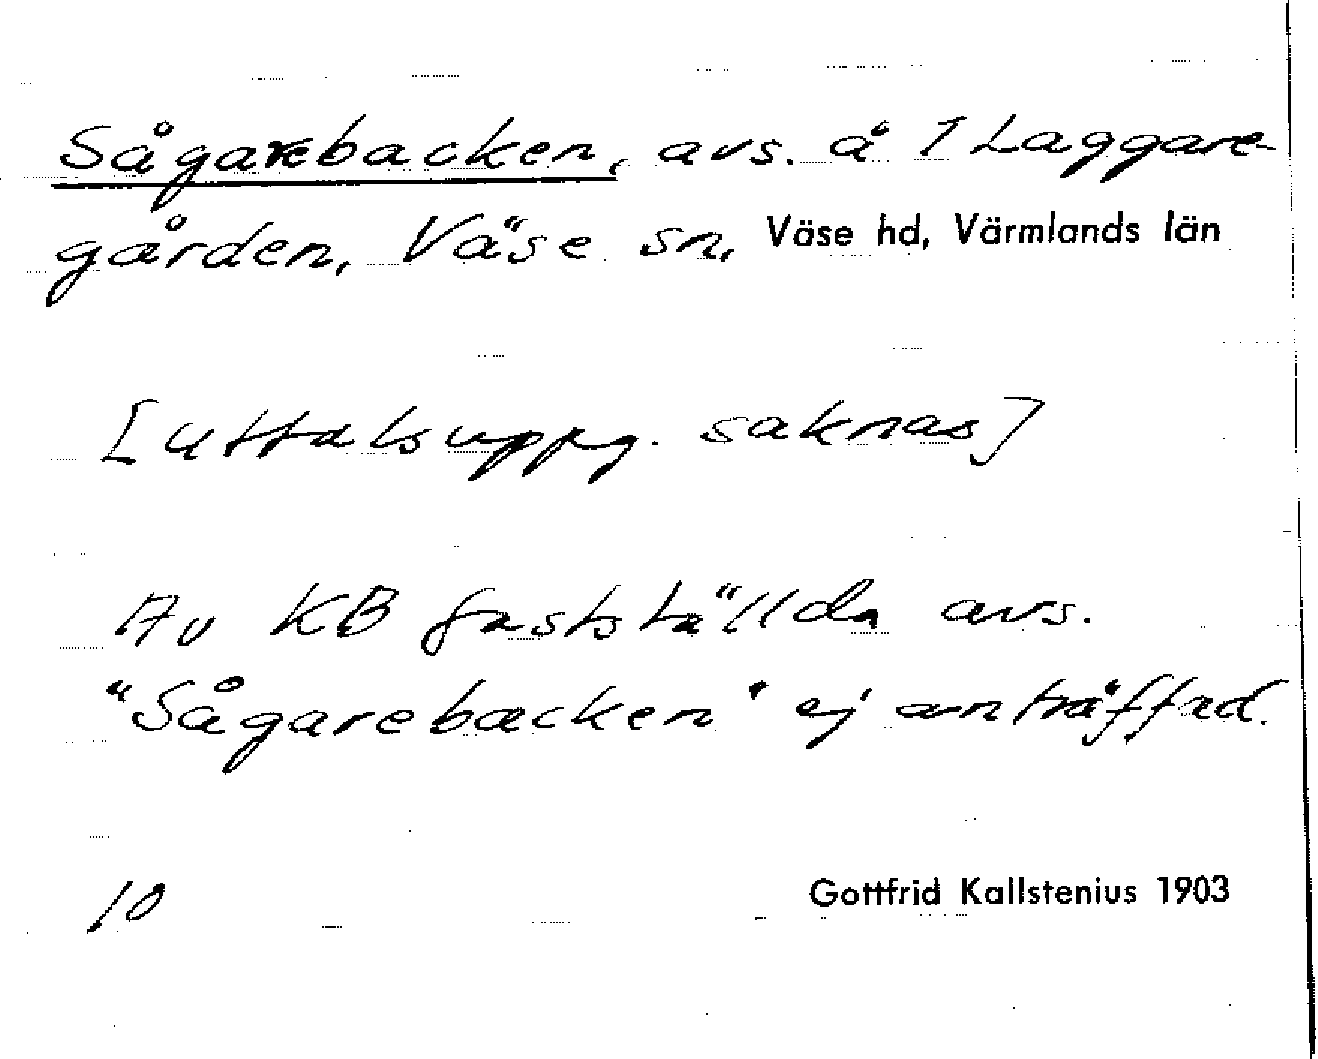 Sågarebacken, avs. å 1 Laggare-
gården, Väse sn, Väse hd, Värmlands län
[uttalsuppg. saknas]
Av KB fastställda avs.
"Sågarebacken" ej anträffad.
10 Gottfrid Kallstenius 1903